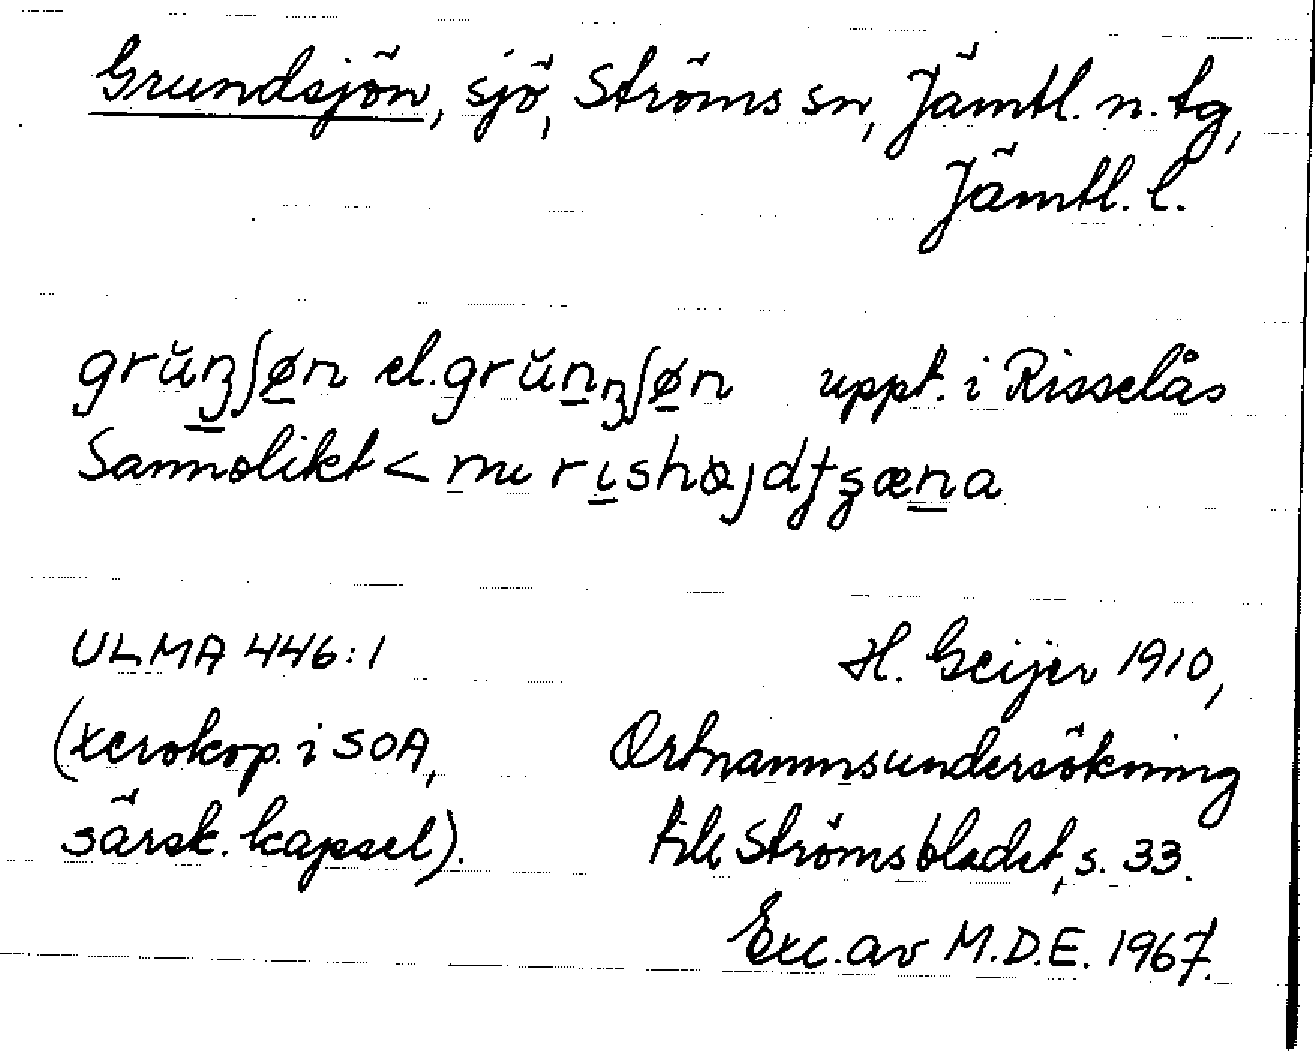 Grundsjön, sjö, Ströms sn, Jämtl. n. tg,
Jämtl. l.
el. uppt. i Risselås
Sannolikt <
ULMA 446:1
H. Geijer 1910,
(xerokop. i SOA,
Ortnamnsundersökning
särsk. kapsel).
till Strömsbladet, s. 33.
Exc. av M.D.E. 1967.